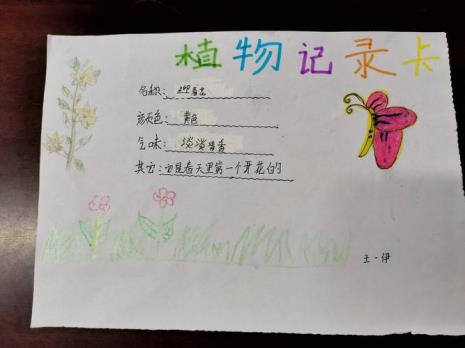 植物记录卡
名称：迎春花
颜色：黄色
气味：淡淡清香
其它：也是春天里第一个开花的
王一伊